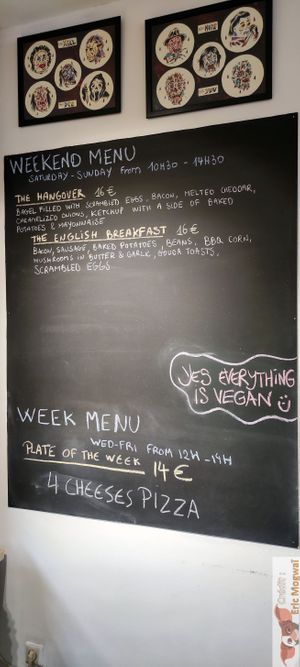 WEEKEND MENU
SATURDAY - SUNDAY FROM 10H30 - 14H30
THE HANGOVER 16€
BAGEL FILLED WITH SCRAMBLED EGGS, BACON, MELTED CHEDDAR,
CARAMELIZED ONIONS, KETCHUP WITH A SIDE OF BAKED
POTATOES & MAYONNAISE
THE ENGLISH BREAKFAST 16€
BACON, SAUSAGE, BAKED POTATOES, BEANS, BBQ CORN,
MUSHROOMS IN BUTTER & GARLIC, TOASTS,
SCRAMBLED EGGS
YES EVERYTHING
IS VEGAN
WEEK MENU
WED-FRI FROM 12H - 14H
PLATE OF THE WEEK 14€
4 CHEESES PIZZA
Crédits :
Eric Mogwai